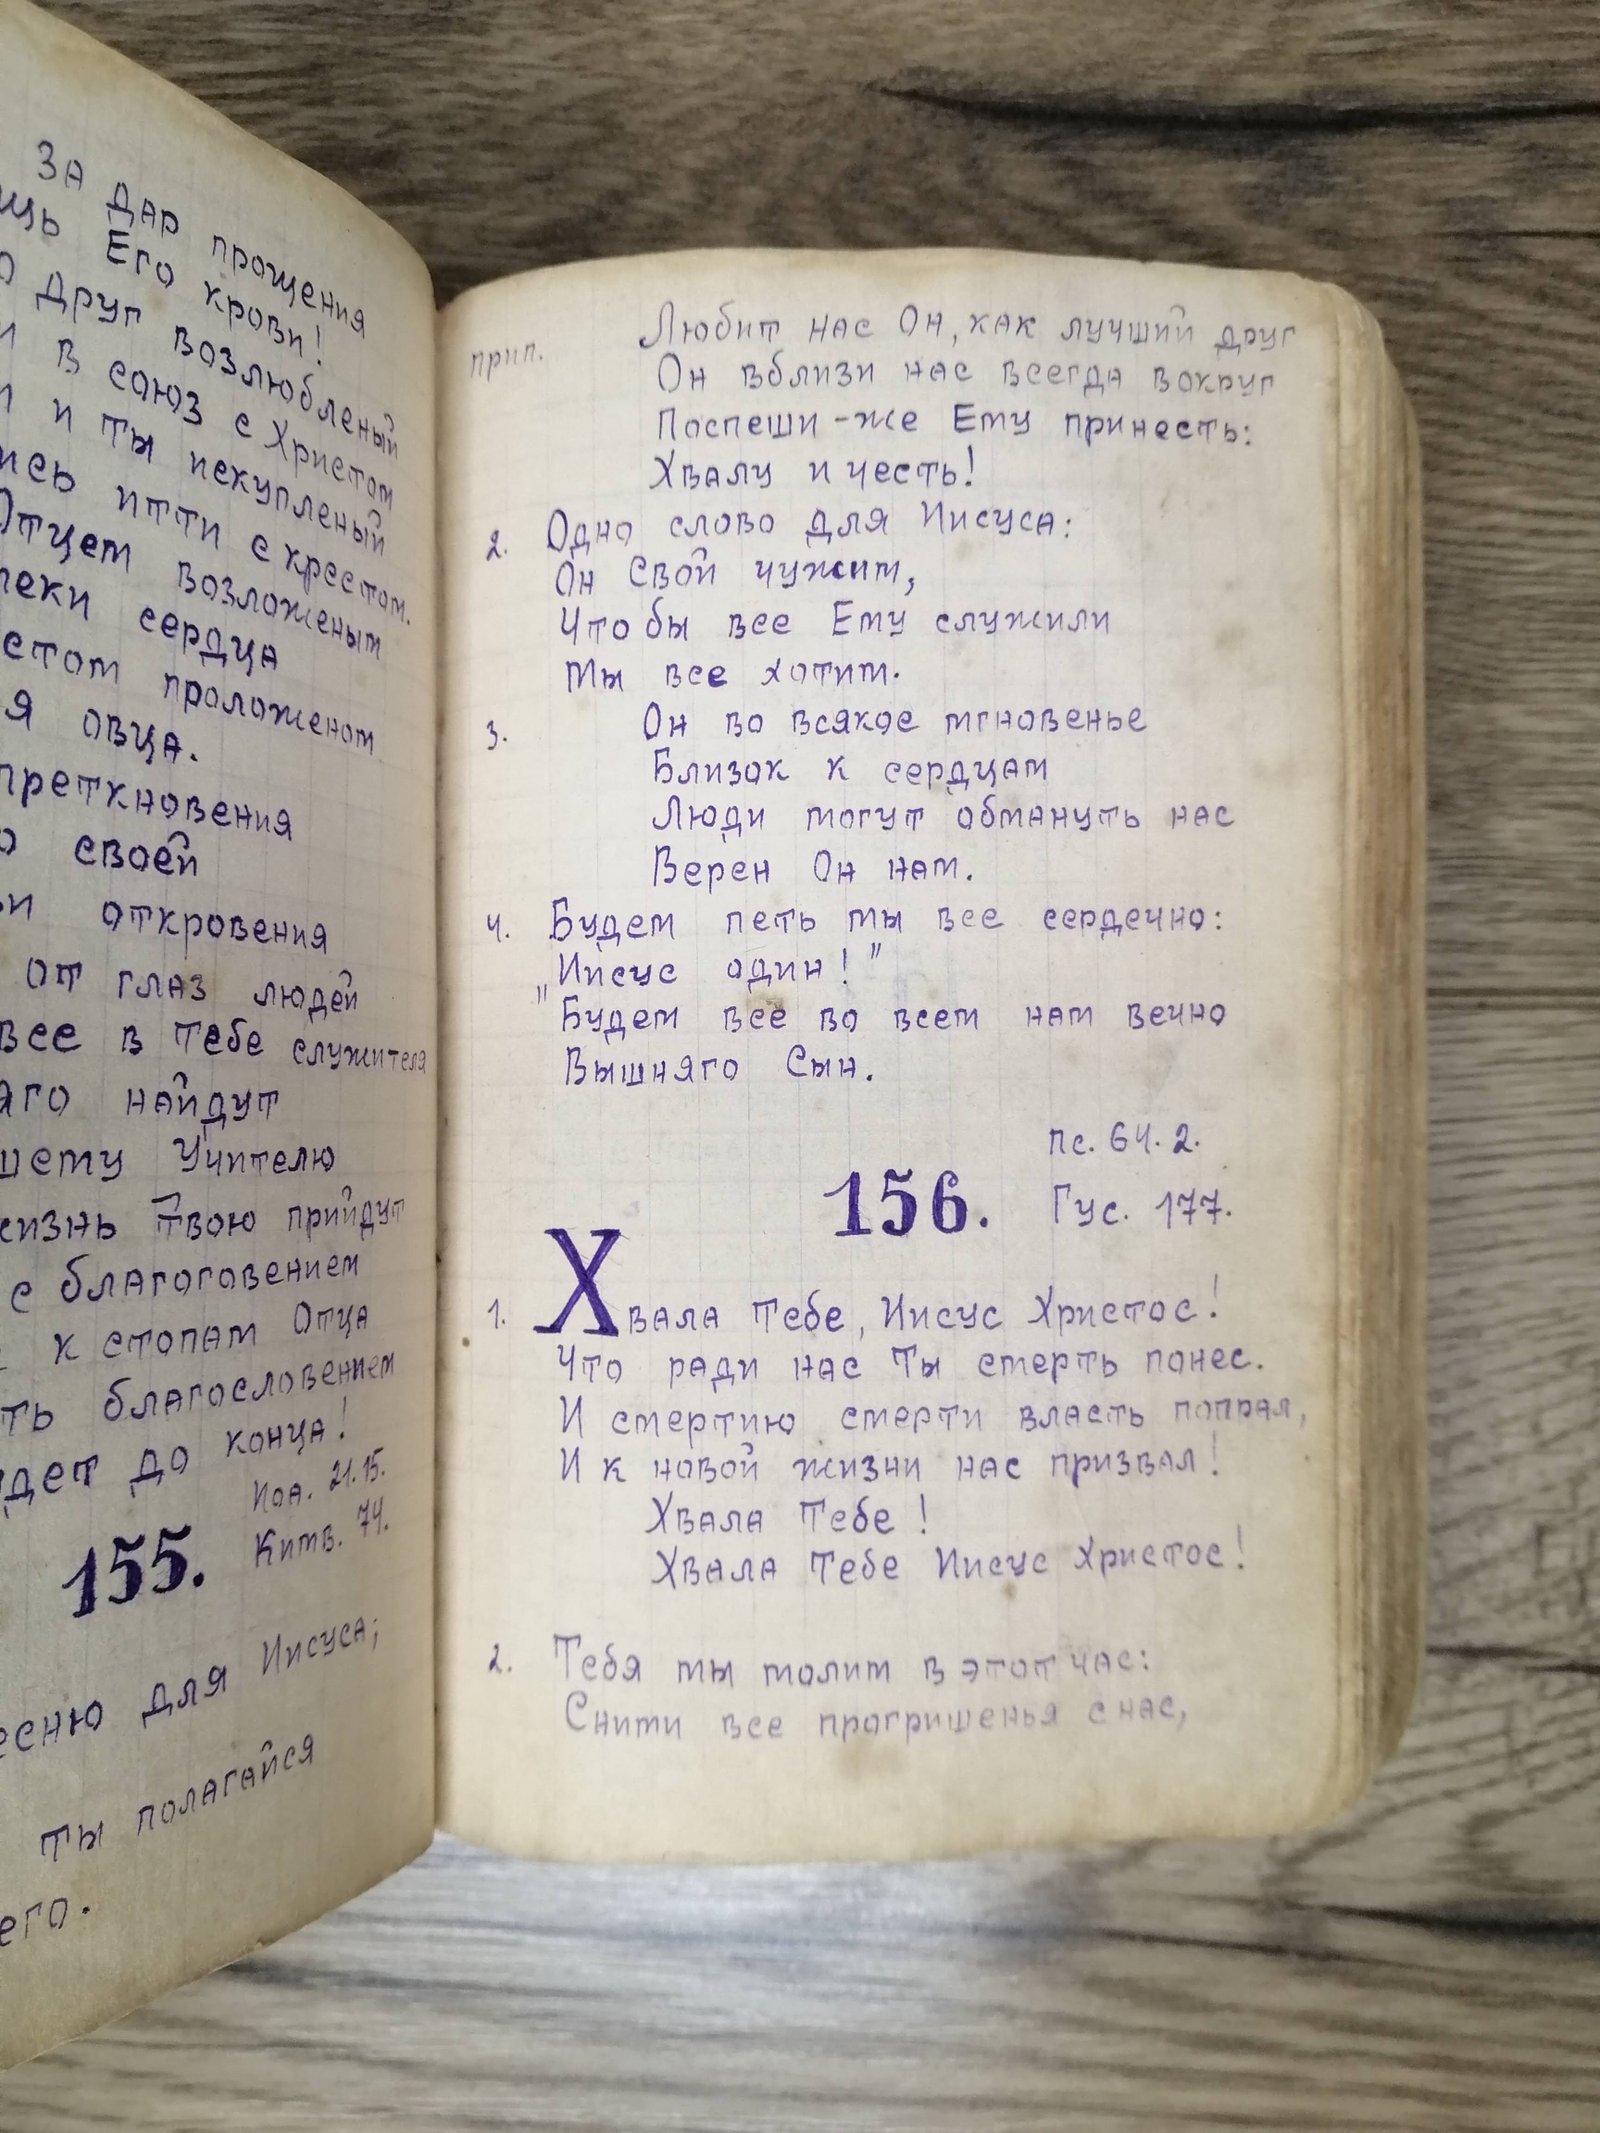 За дар прощения
Его крови!
друг возлюбленый
в союз с Христом
и ты искупленый
итти с крестом.
Отцем возложеным
сердца
проложеном
овца.
преткновения
своей
откровения
от глаз людей
все в Тебе служителя
найдут
Учителю
Твою прийдут
с благоговением
к стопам Отца
благословением
до конца!
Иоа. 21.15.
155. Кимв. 74.
для Иисуса;
ты полагайся
прип. Любит нас Он, как лучший друг
Он вблизи нас всегда вокруг
Поспеши-же Ему принесть:
Хвалу и честь!
2. Одно слово для Иисуса:
Он Свой чужим,
Что бы все Ему служили
Мы все хотим.
3. Он во всякое мгновенье
Близок к сердцам
Люди могут обмануть нас
Верен Он нам.
4. Будем петь мы все сердечно:
„Иисус один!"
"Будем все во всем нам вечно
Вышняго Сын.
Пс. 64. 2.
156. Гус. 177.
1. Хвала Тебе, Иисус Христос!
Что ради нас Ты смерть понес.
И смертию смерти власть попрал,
И к новой жизни нас призвал!
Хвала Тебе!
Хвала Тебе Иисус Христос!
2. Тебя мы молим в этот час:
Сними все прогришенья с нас,